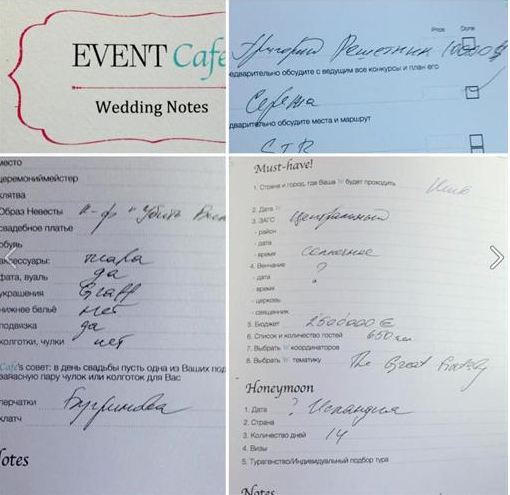 EVENT Cafe
Wedding Notes
Price Done
Григорий Решетник 10000 $
едварительно обсудите с ведущим все конкурсы и план его
Сережа
дварительно обсудите места и маршрут
место
церемониймейстер
клятва
Образ Невесты к-ф "Убить
свадебное платье
обувь
аксессуары: тиара
фата, вуаль да
украшения Graff
нижнее бельё нет
подвязка да
колготки, чулки нет
Cafe's совет: в день свадьбы пусть одна из Ваших под
запасную пару чулок или колготок для Вас
перчатки
клатч
otes
Must-have!
1. Страна и город, где Ваша W будет проходить
2. Дата W
3. ЗАГС Центральный
- район
- дата
- время солнечное
4. Венчание ?
- дата
- время
- церковь
- священник
5. Бюджет 2500000 €
6. Список и количество гостей 650 чел
7. Выбрать W координаторов
8. Выбрать W тематику The Great Gatsby
Honeymoon
1. Дата ? Исландия
2. Страна
3. Количество дней 14
4. Визы
5. Турагенство/Индивидуальный подбор тура
Notes